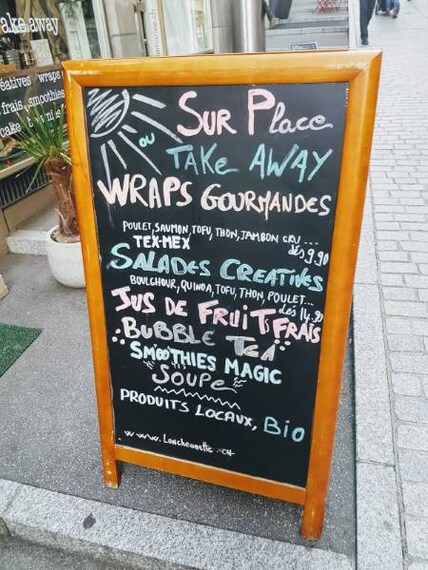 ake.away
éatives wraps
frais, smoothies
SUR PLace
ou
TAKe AWAY
WRAPS GOURMANDES
POULET, SAUMON, TOFU, THON, JAMBON CRU ...
TEX-MEX
dès 9.90
SALADES CREATIVES
BOULGHOUR, QUINOA, TOFU, THON, POULET...
dès 14.90
JUS DE FRUIT FRAIS
BUBBLE TEA
SMOOTHIES MAGIC
SOUPe
PRODUITS LOCAUX, Bio
www.Luncheonette.CH